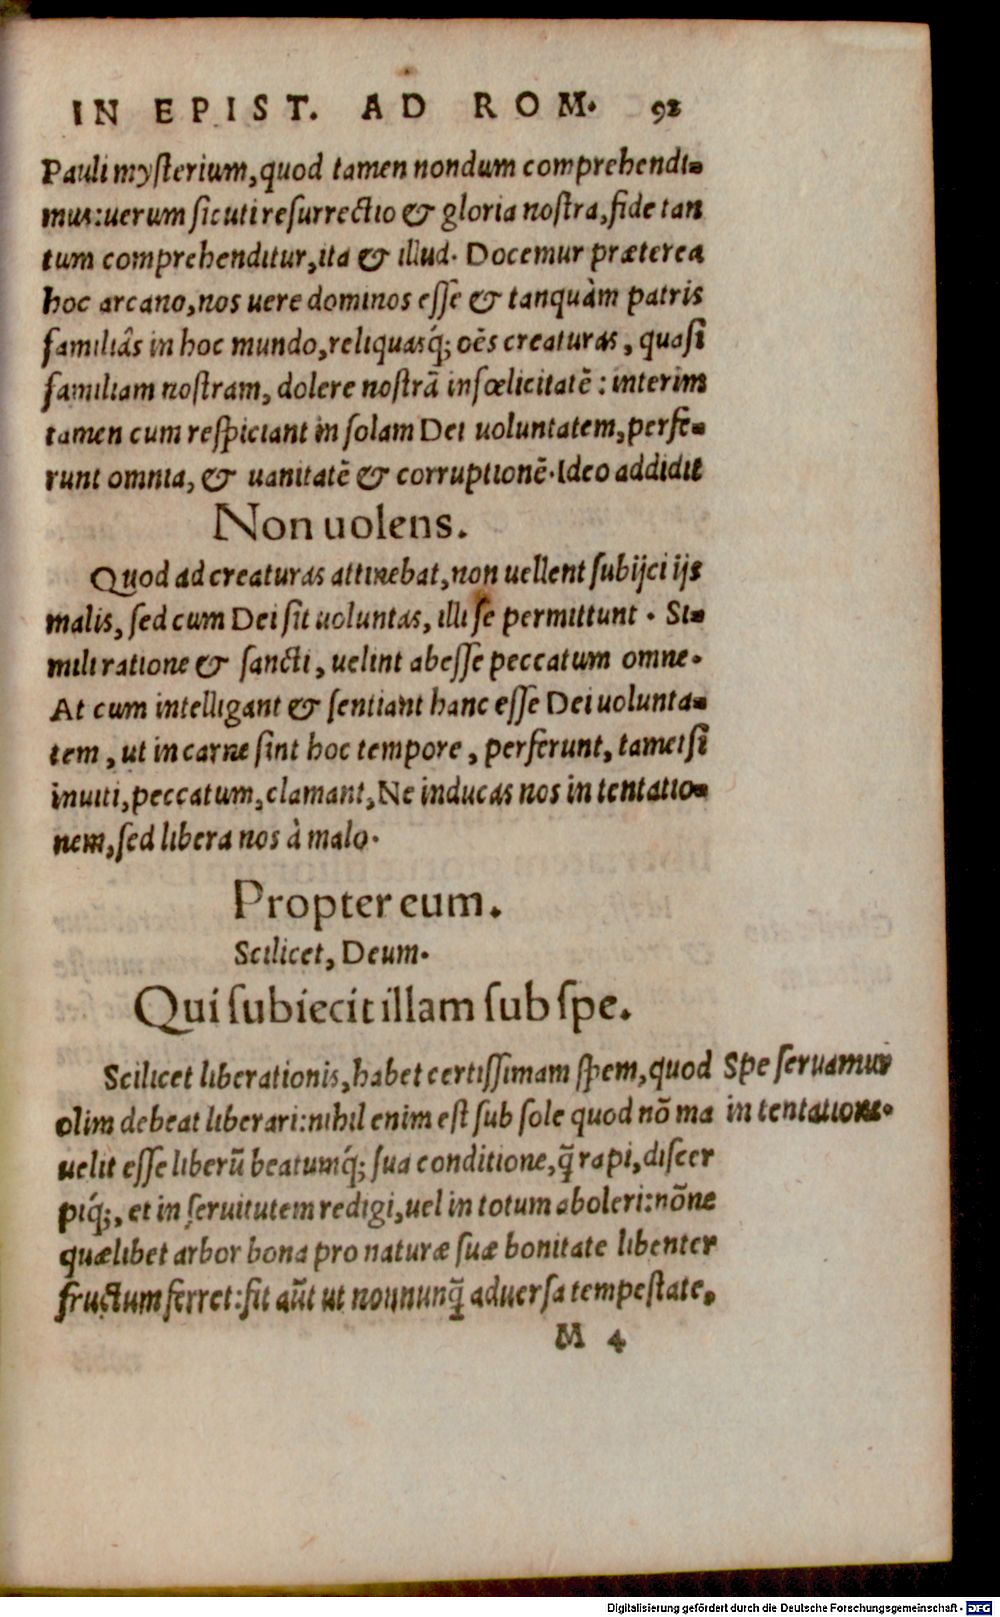 IN EPIST. AD ROM. 92
Pauli mysterium, quod tamen nondum comprehendi-
mus: uerum sicuti resurrectio & gloria nostra, fide tan
tum comprehenditur, ita & illud. Docemur præterea
hoc arcano, nos uere dominos esse & tanquàm patris
familiâs in hoc mundo, reliquasq́; oẽs creaturas, quasi
familiam nostram, dolere nostrã infœlicitatẽ: interim
tamen cum respiciant in solam Dei uoluntatem, perfe-
runt omnia, & uanitatẽ & corruptionẽ. Ideo addidit
Non uolens.
Quod ad creaturas attinebat, non uellent subijci ijs
malis, sed cum Dei sit uoluntas, illi se permittunt. Si-
mili ratione & sancti, uelint abesse peccatum omne.
At cum intelligant & sentiant hanc esse Dei uolunta-
tem, ut in carne sint hoc tempore, perferunt, tametsi
inuiti, peccatum, clamant, Ne inducas nos in tentatio-
nem, sed libera nos à malo.
Propter eum.
Scilicet, Deum.
Qui subiecit illam sub spe.
Scilicet liberationis, habet certissimam spem, quod
olim debeat liberari: nihil enim est sub sole quod nõ ma
uelit esse liberũ beatumq́; sua conditione, q̃ rapi, discer
piq́;, et in seruitutem redigi, uel in totum aboleri: nõne
quælibet arbor bona pro naturæ suæ bonitate libenter
fructum ferret: fit aũt ut nonnunq̃ aduersa tempestate,
Spe seruamur
in tentatione.
M 4
Digitalisierung gefördert durch die Deutsche Forschungsgemeinschaft - DFG